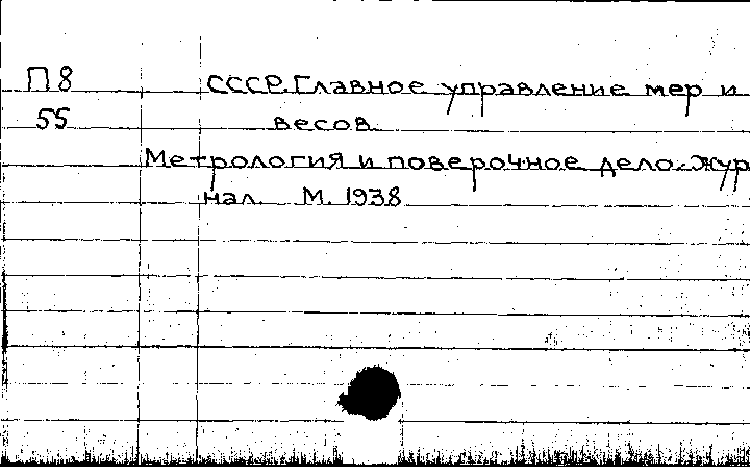 П8 СССР. Главное управление мер и
55 весов.
Метрология и поверочное дело. Жур
нал. М. 1938